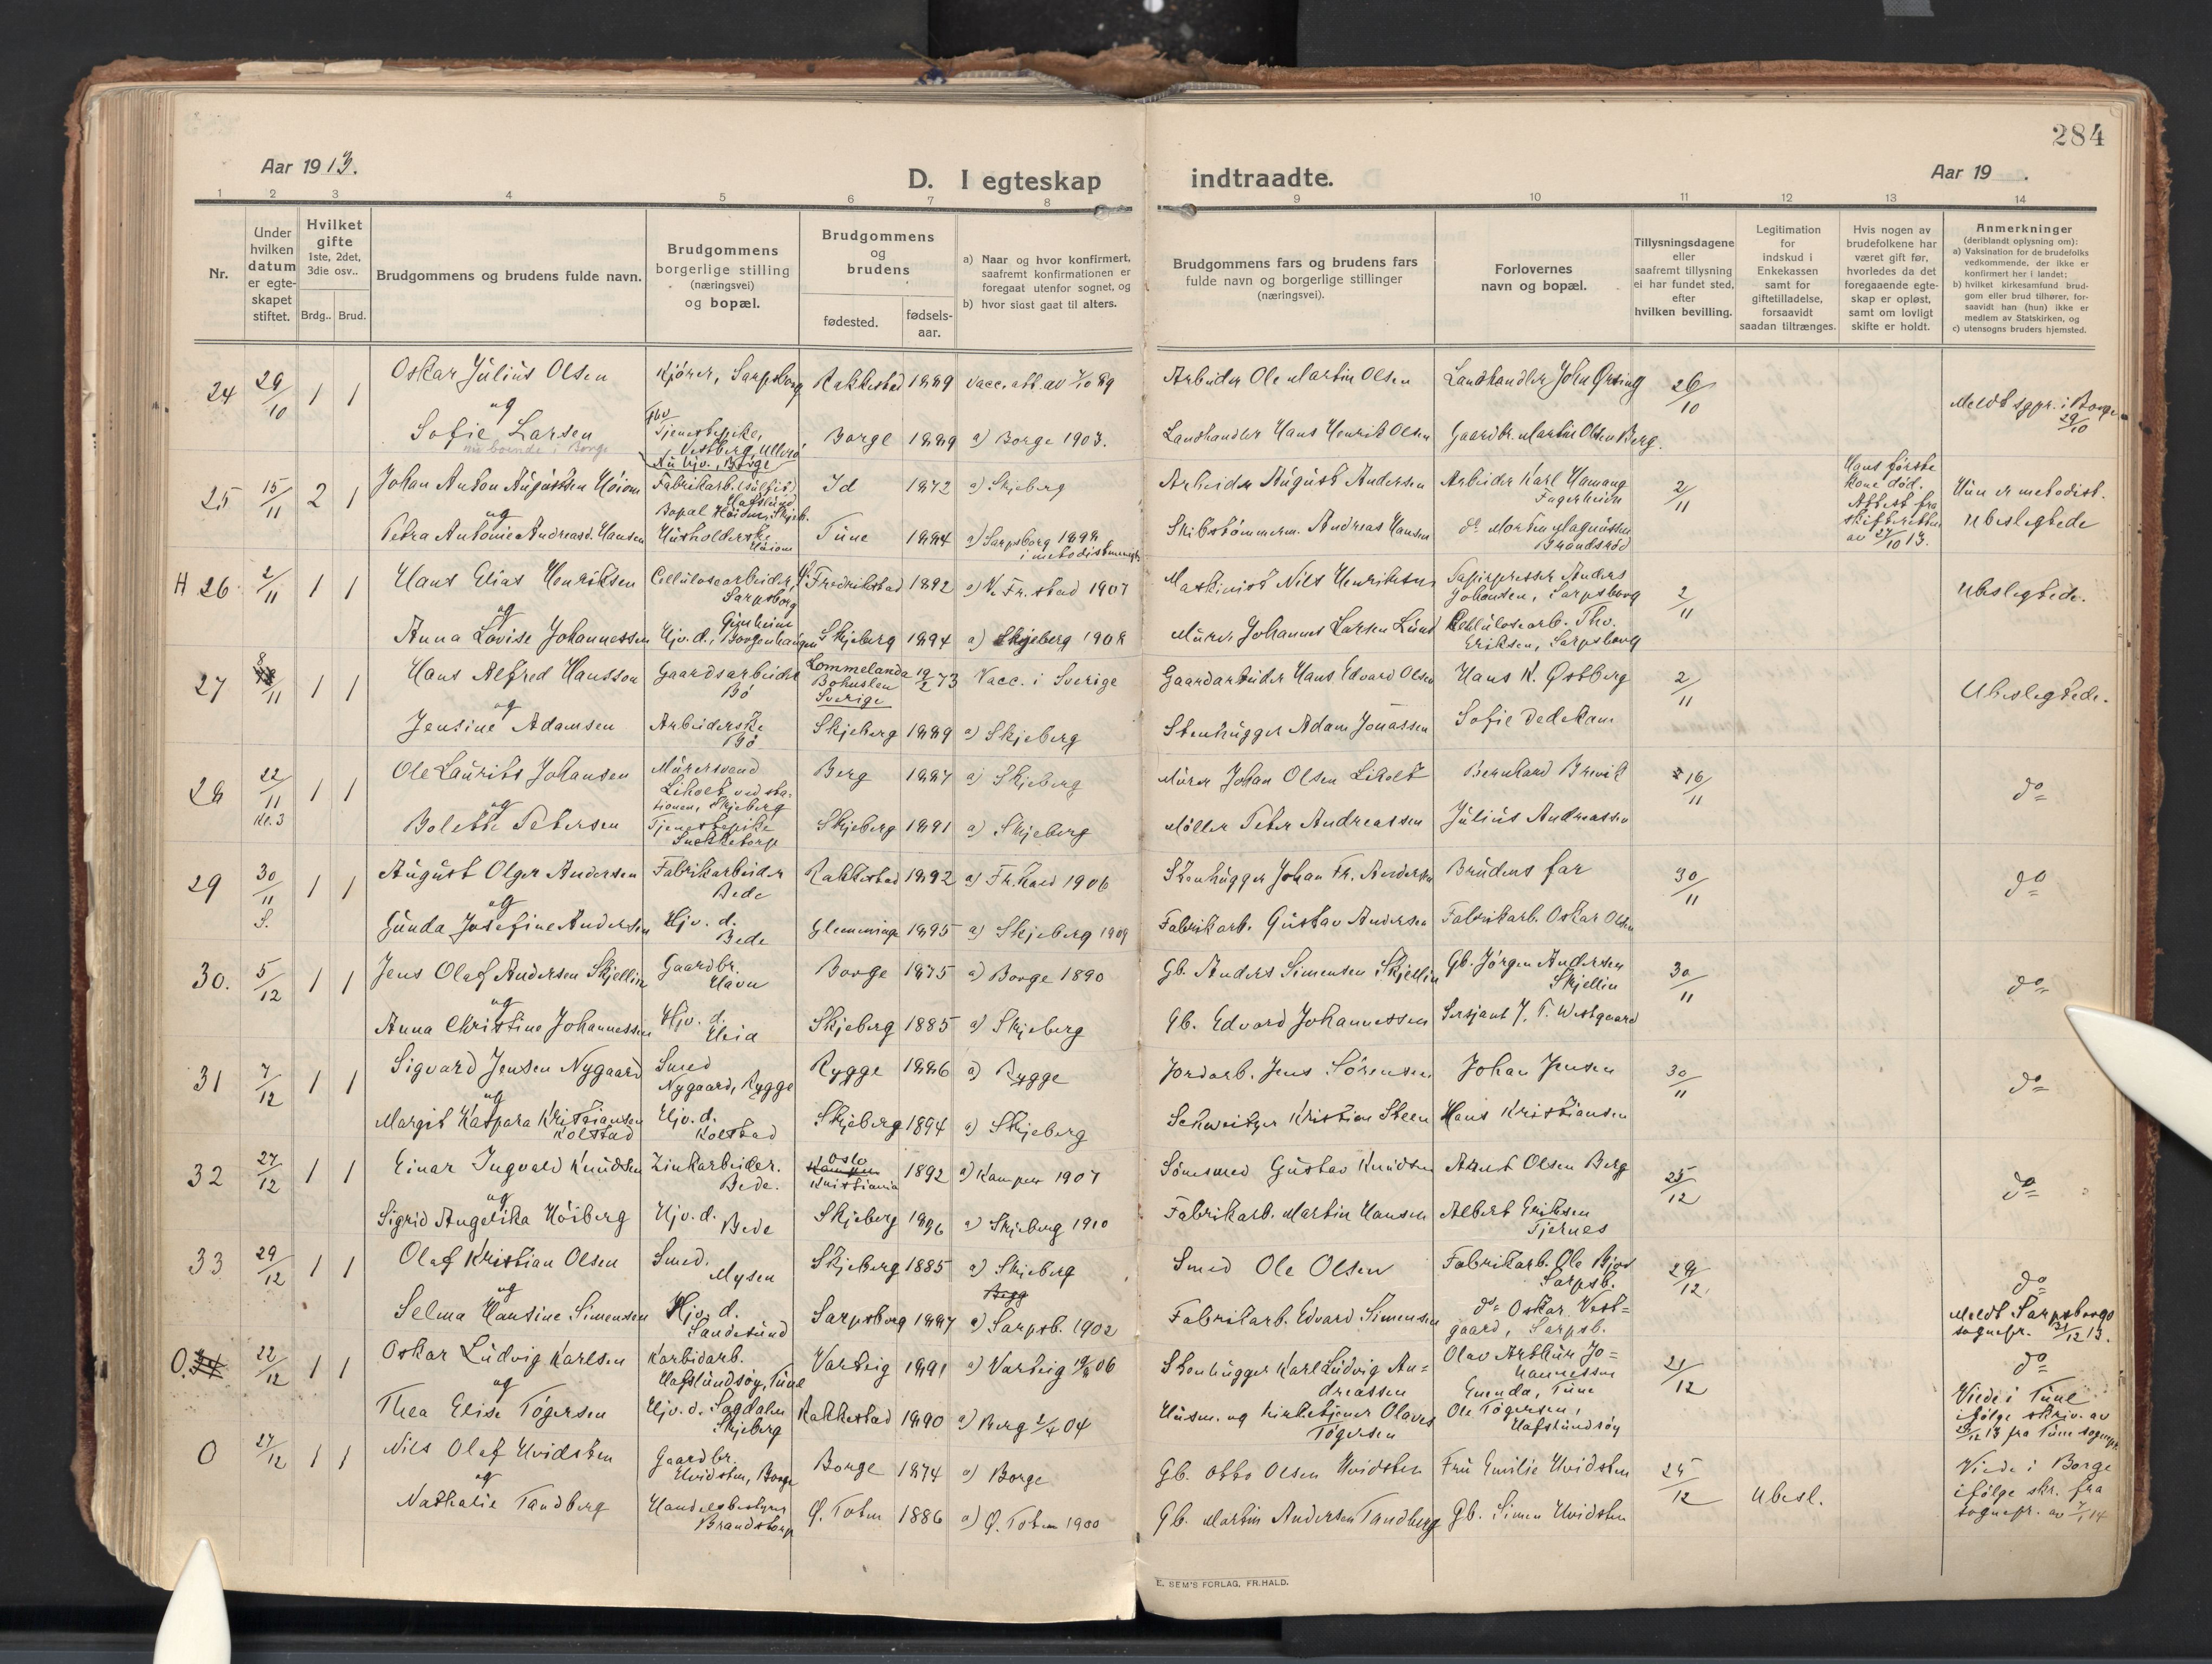 284
Aar 1913.
D. I egteskap indtraadte.
Aar 19 .
1 2 3 4 5 6 7 8 9 10 11 12 13 14
Nr.
Under hvilken datum er egteskapet stiftet.
Hvilket gifte 1ste, 2det, 3die osv..
Brdg.. Brud.
Brudgommens og brudens fulde navn.
Brudgommens borgerlige stilling (næringsvei) og bopæl.
Brudgommens og brudens
fødested.
fødsels-aar.
a) Naar og hvor konfirmert, saafremt konfirmationen er foregaat utenfor sognet, og
b) hvor sidst gaat til alters.
Brudgommens fars og brudens fars fulde navn og borgerlige stillinger (næringsvei).
Forlovernes navn og bopæl.
Tillysningsdagene eller saafremt tillysning ei har fundet sted, efter hvilken bevilling.
Legitimation for indskud i Enkekassen samt for giftetilladelse, forsaavidt saadan tiltrænges.
Hvis nogen av brudefolkene har været gift før, hvorledes da det foregaaende egteskap er opløst, samt om lovligt skifte er holdt.
Anmerkninger
(deriblandt oplysning om):
a) Vaksination for de brudefolks vedkommende, der ikke er konfirmert her i landet;
b) hvilket kirkesamfund brudgom eller brud tilhører, forsaavidt han (hun) ikke er medlem av Statskirken, og
c) utensogns bruders hjemsted.
24 29/10 1 1 Oskar Julius Olsen Kjører, Sarpsborg Rakkestad 1889 Vacc. att. av 7/10 89 Arbeider Ole Martin Olsen Landhandler John Ørsing 26/10 Meldt sgpr. i Borge 29/10
og
Sofie Larsen Tjenestepike, Vestberg, Ullerø Borge 1889 a) Borge 1903. Landhandler Hans Henrik Olsen Gaardbr. Martin Olsen Berg.
nu boende i Borge Nu hjv., Borge
25 15/11 2 1 Johan Anton Augustsen Höiom Fabrikarb. (sulfit) Hafslund Bopæl Höidm, Skjeb. Id 1872 a) Skjeberg Arbeider August Andersen Arbeider Karl Hamang Fagerheim 2/11 Hans første kone död. Attest fra skifteretten av 27/10 13. Hun er metodist.
og
Petra Antonie Andreasd. Hansen Husholderske Höiom Tune 1884 a) Sarpsborg 1898 i metodistmenigh. Skibstömmerm. Andreas Hansen do Morten Magnussen Brandsröd Ubeslegtede
H 26 2/11 1 1 Hans Elias Henriksen Cellulosearbeider, Sarpsborg Fredrikstad 1892 a) V. Fr.stad 1907 Maskinist Nils Henriksen Papirpresser Anders Johansen, Sarpsborg 2/11 Ubeslegtede.
og
Anna Lovise Johannessen Hjv. d., Borgenhaugen Skjeberg 1894 a) Skjeberg 1908 Murer Johannes Larsen Lund Cellulosearb. Thv. Eriksen, Sarpsborg
27 8/11 1 1 Hans Alfred Hansson Gaardsarbeider Bö Lommelanda Bohuslen Sverige 19/2 73 Vacc. i Sverige Gaardarbeider Hans Edvard Olsen Hans K. Østberg 2/11 Ubeslegtede.
og
Jensine Adamsen Arbeiderske Bö Skjeberg 1889 a) Skjeberg Stenhugger Adam Jonassen Sofie Dedekam
28 22/11 Kl. 3 1 1 Ole Laurits Johansen Murersvend Liholt ved stationen, Skjeberg Berg 1887 a) Skjeberg Murer Johan Olsen Liholt Bernhard Brevik 16/11 do
og
Bolette Petersen Tjenestepike Skjeberg 1891 a) Skjeberg Møller Peter Andreassen Julius Andreassen
29 30/11 S. 1 1 August Olger Andersen Fabrikarbeider Bede Rakkestad 1892 a) Fr.hald 1906 Stenhugger Johan Fr. Andersen Brudens far 30/11 do
og
Gunda Josefine Andersen Hjv. d. Bede Glemminge 1895 a) Skjeberg 1909 Fabrikarb. Gustav Andersen Fabrikarb. Oskar Olsen
30. 5/12 1 1 Jens Olaf Andersen Skjellin Gaardbr. Havn Borge 1875 a) Borge 1890 Gb. Anders Simensen Skjellin Gb. Jörgen Andersen Skjellin 30/11 do
og
Anna Christine Johannessen Hjv. d. Heia Skjeberg 1885 a) Skjeberg Gb. Edvard Johannessen Sersjant J. T. Westgaard
31 7/12 1 1 Sigvard Jensen Nygaard Smed Nygaard, Rygge Rygge 1886 a) Rygge Jordarb. Jens Sörensen Johan Jensen 30/11 do
og
Margit Kaspara Kristiansen Kolstad Hjv. d. Kolstad Skjeberg 1894 a) Skjeberg Schweitzer Kristian Steen Hans Kristiansen
32 27/12 1 1 Einar Ingvald Knudsen Zinkarbeider. Bede. Oslo Kampen Kristiania 1892 a) Kampen 1907 Gustav Knudsen Olsen Berg 25/12 do
og
Sigrid Angelika Höiberg Hjv. d. Bede Skjeberg 1896 a) Skjeberg 1910 Fabrikarb. Martin Hansen Albert Eriksen Tjernes
33 29/12 1 1 Olaf Kristian Olsen Smed. Mysen Skjeberg 1885 a) Skjeberg Smed Ole Olsen Fabrikarb. Ole Sarpsb. 29/12 do
og
Selma Hansine Simensen Hjv. d. Sandesund Sarpsborg 1887 a) Sarpsb. 1902 Fabrikarb. Edvard Simensen do Oskar Vestgaard, Sarpsb. Meldt Sarpsborgs sognepr. 31/12 13.
O. 34 22/12 1 1 Oskar Ludvig Karlsen Karbidarb. Hafslundsøy, Tune Varteig 1891 a) Varteig 06 Stenhugger Karl Ludvig Andreassen Olav Arthur Johannessen Tune 21/12 do
og
Thea Elise Tögersen Hjv. d. Sagdalen Skjeberg Rakkestad 1890 a) Berg 2/4 04 Husm. og kirketjener Olaves Tögersen Ole Tögersen, Hafslundsöy Viede i Tune ifölge skriv. av 13 fra Tune sognepr.
O 27/12 1 1 Nils Olaf Hvidsten Gaardbr. Hvidsten, Borge Borge 1874 a) Borge Gb. Otto Olsen Hvidsten Fru Emilie Hvidsten 25/12 Ubesl. Viede i Borge ifölge skr. fra sognepr. av 7/1 14
og
Nathalie Tandberg Handelsbestyrer Brandstorp Ø. Toten 1886 a) Ø. Toten 1900 Gb. Martin Andersen Tandberg Gb. Simen Hvidsten
E. SEM'S FORLAG, FR.HALD.